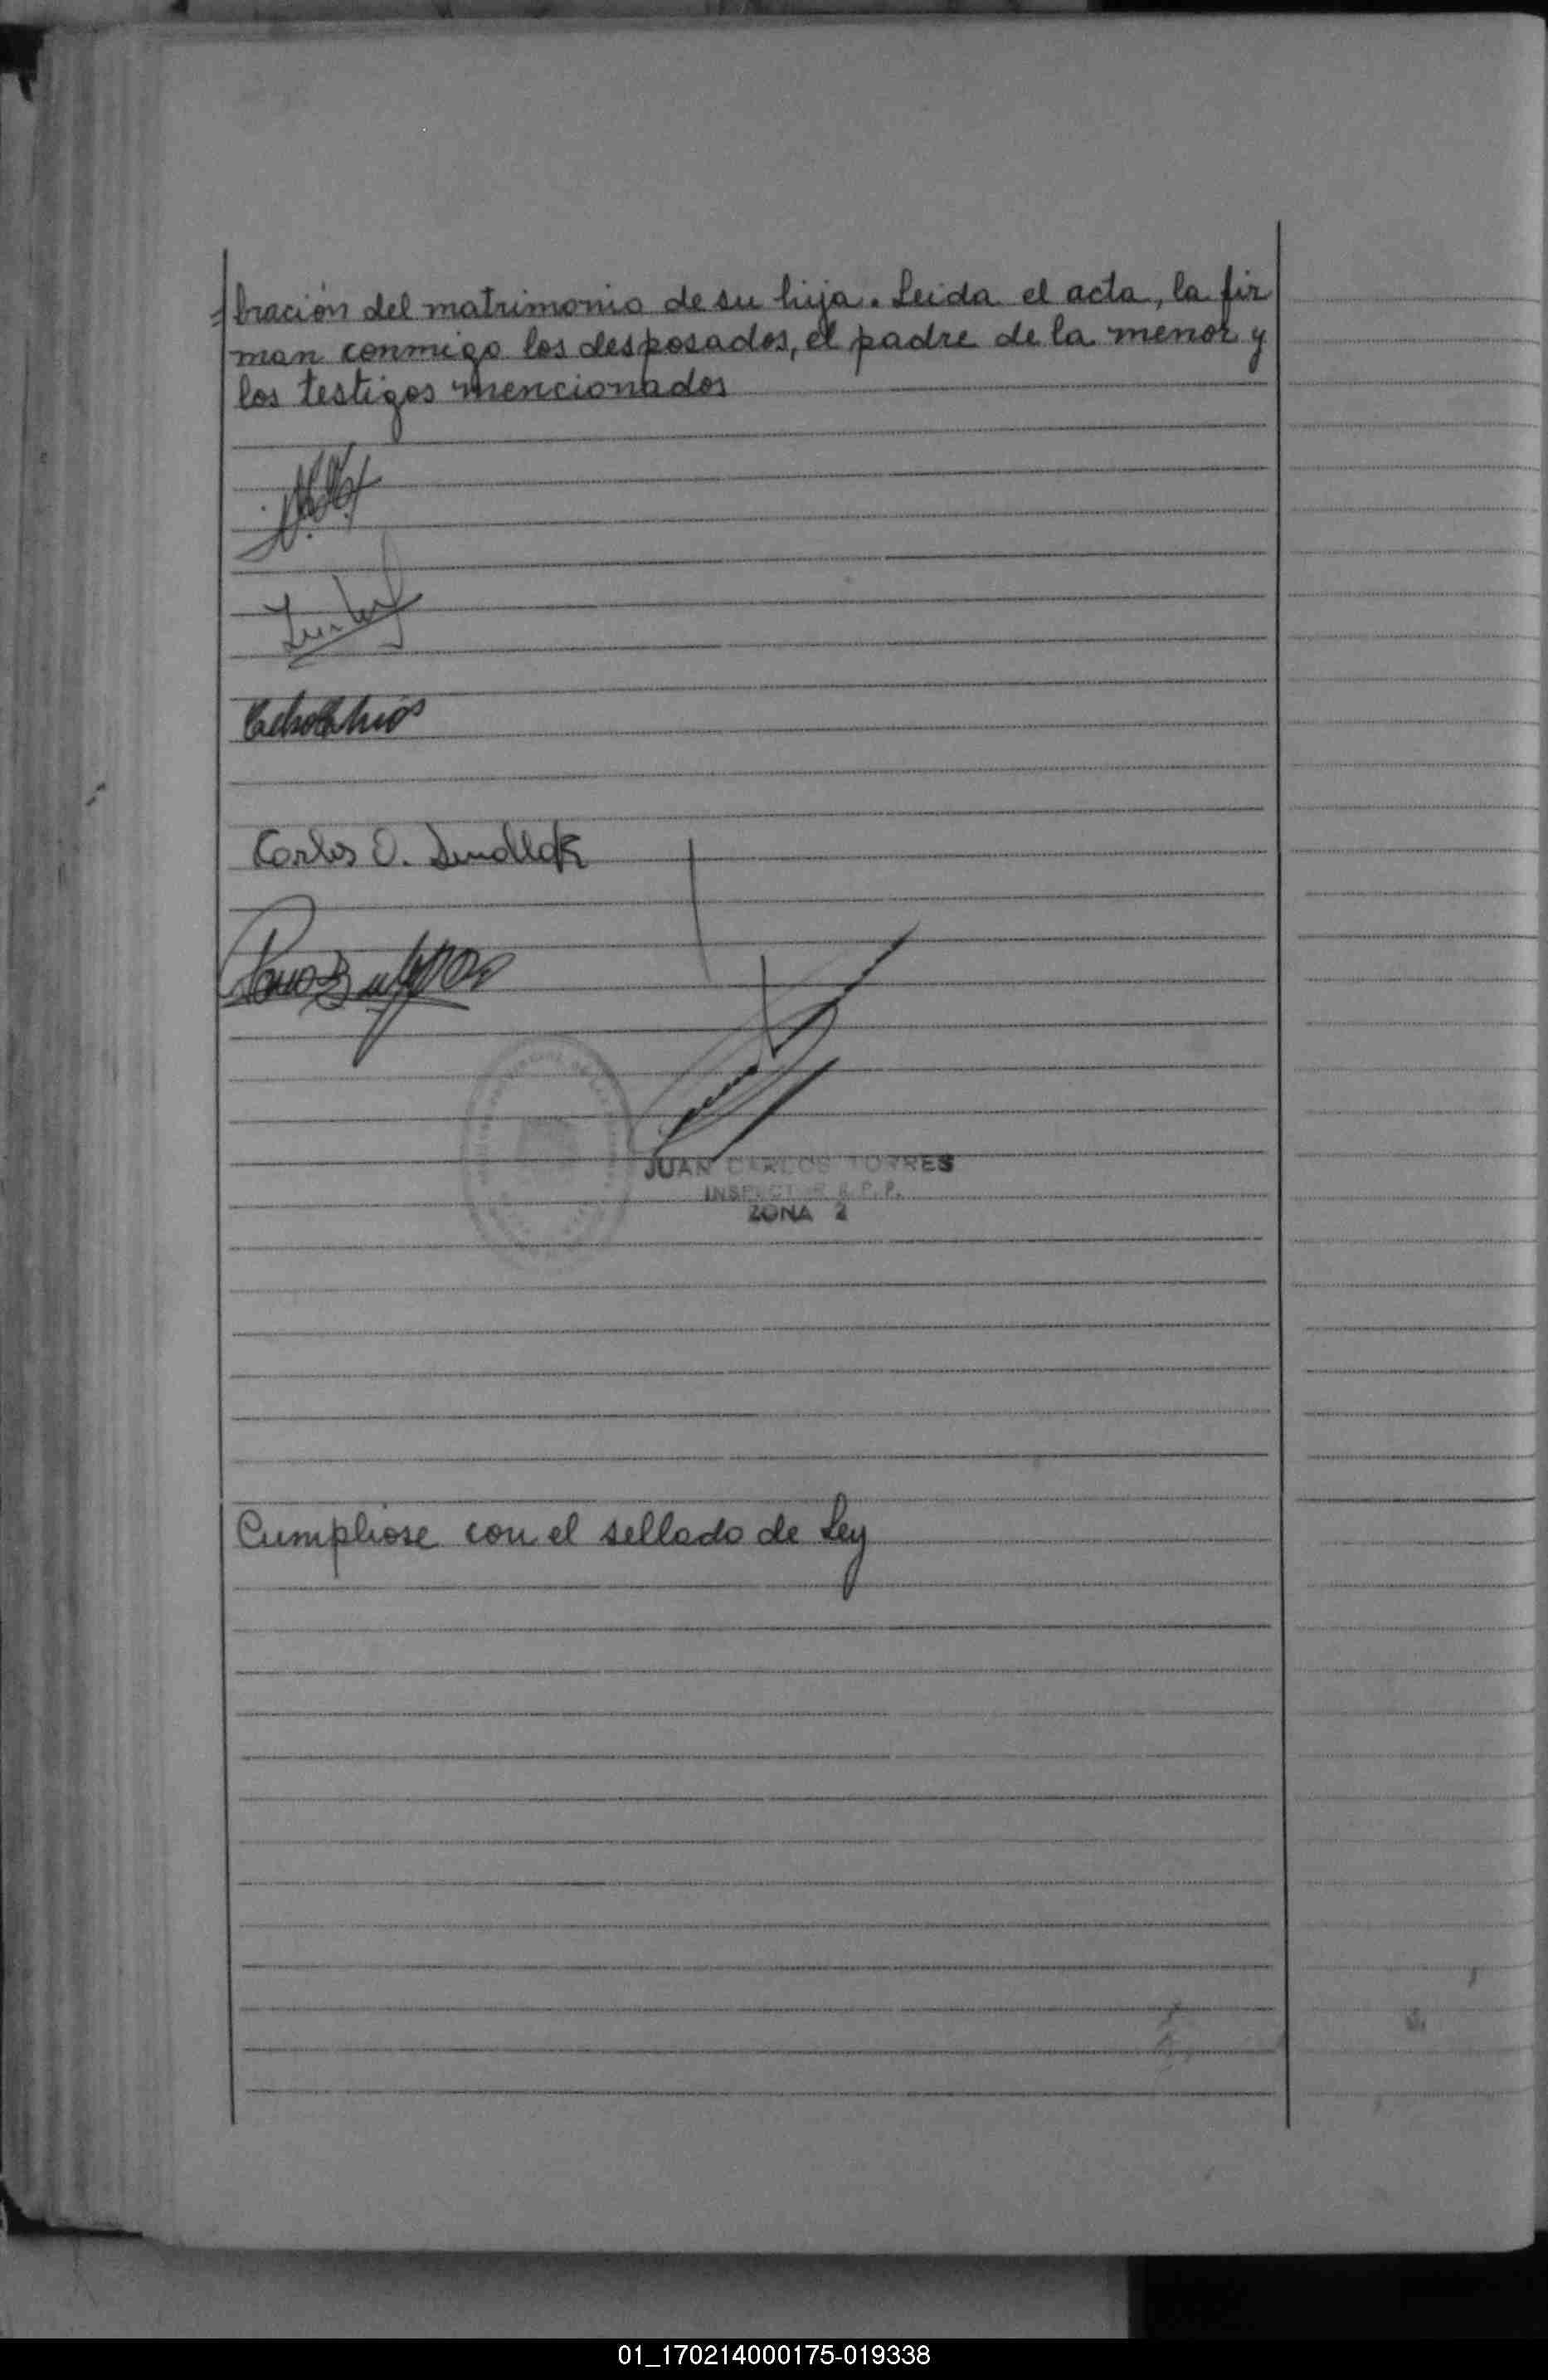 =bración del matrimonio de su hija. Leida el acta, la fir
man conmigo los desposados, el padre de la menor y
los testigos mencionados
Carlos O.
JUAN CARLOS TORRES
INSPECTOR R.P.P.
ZONA 2
Cumpliose con el sellado de Ley
01_170214000175-019338